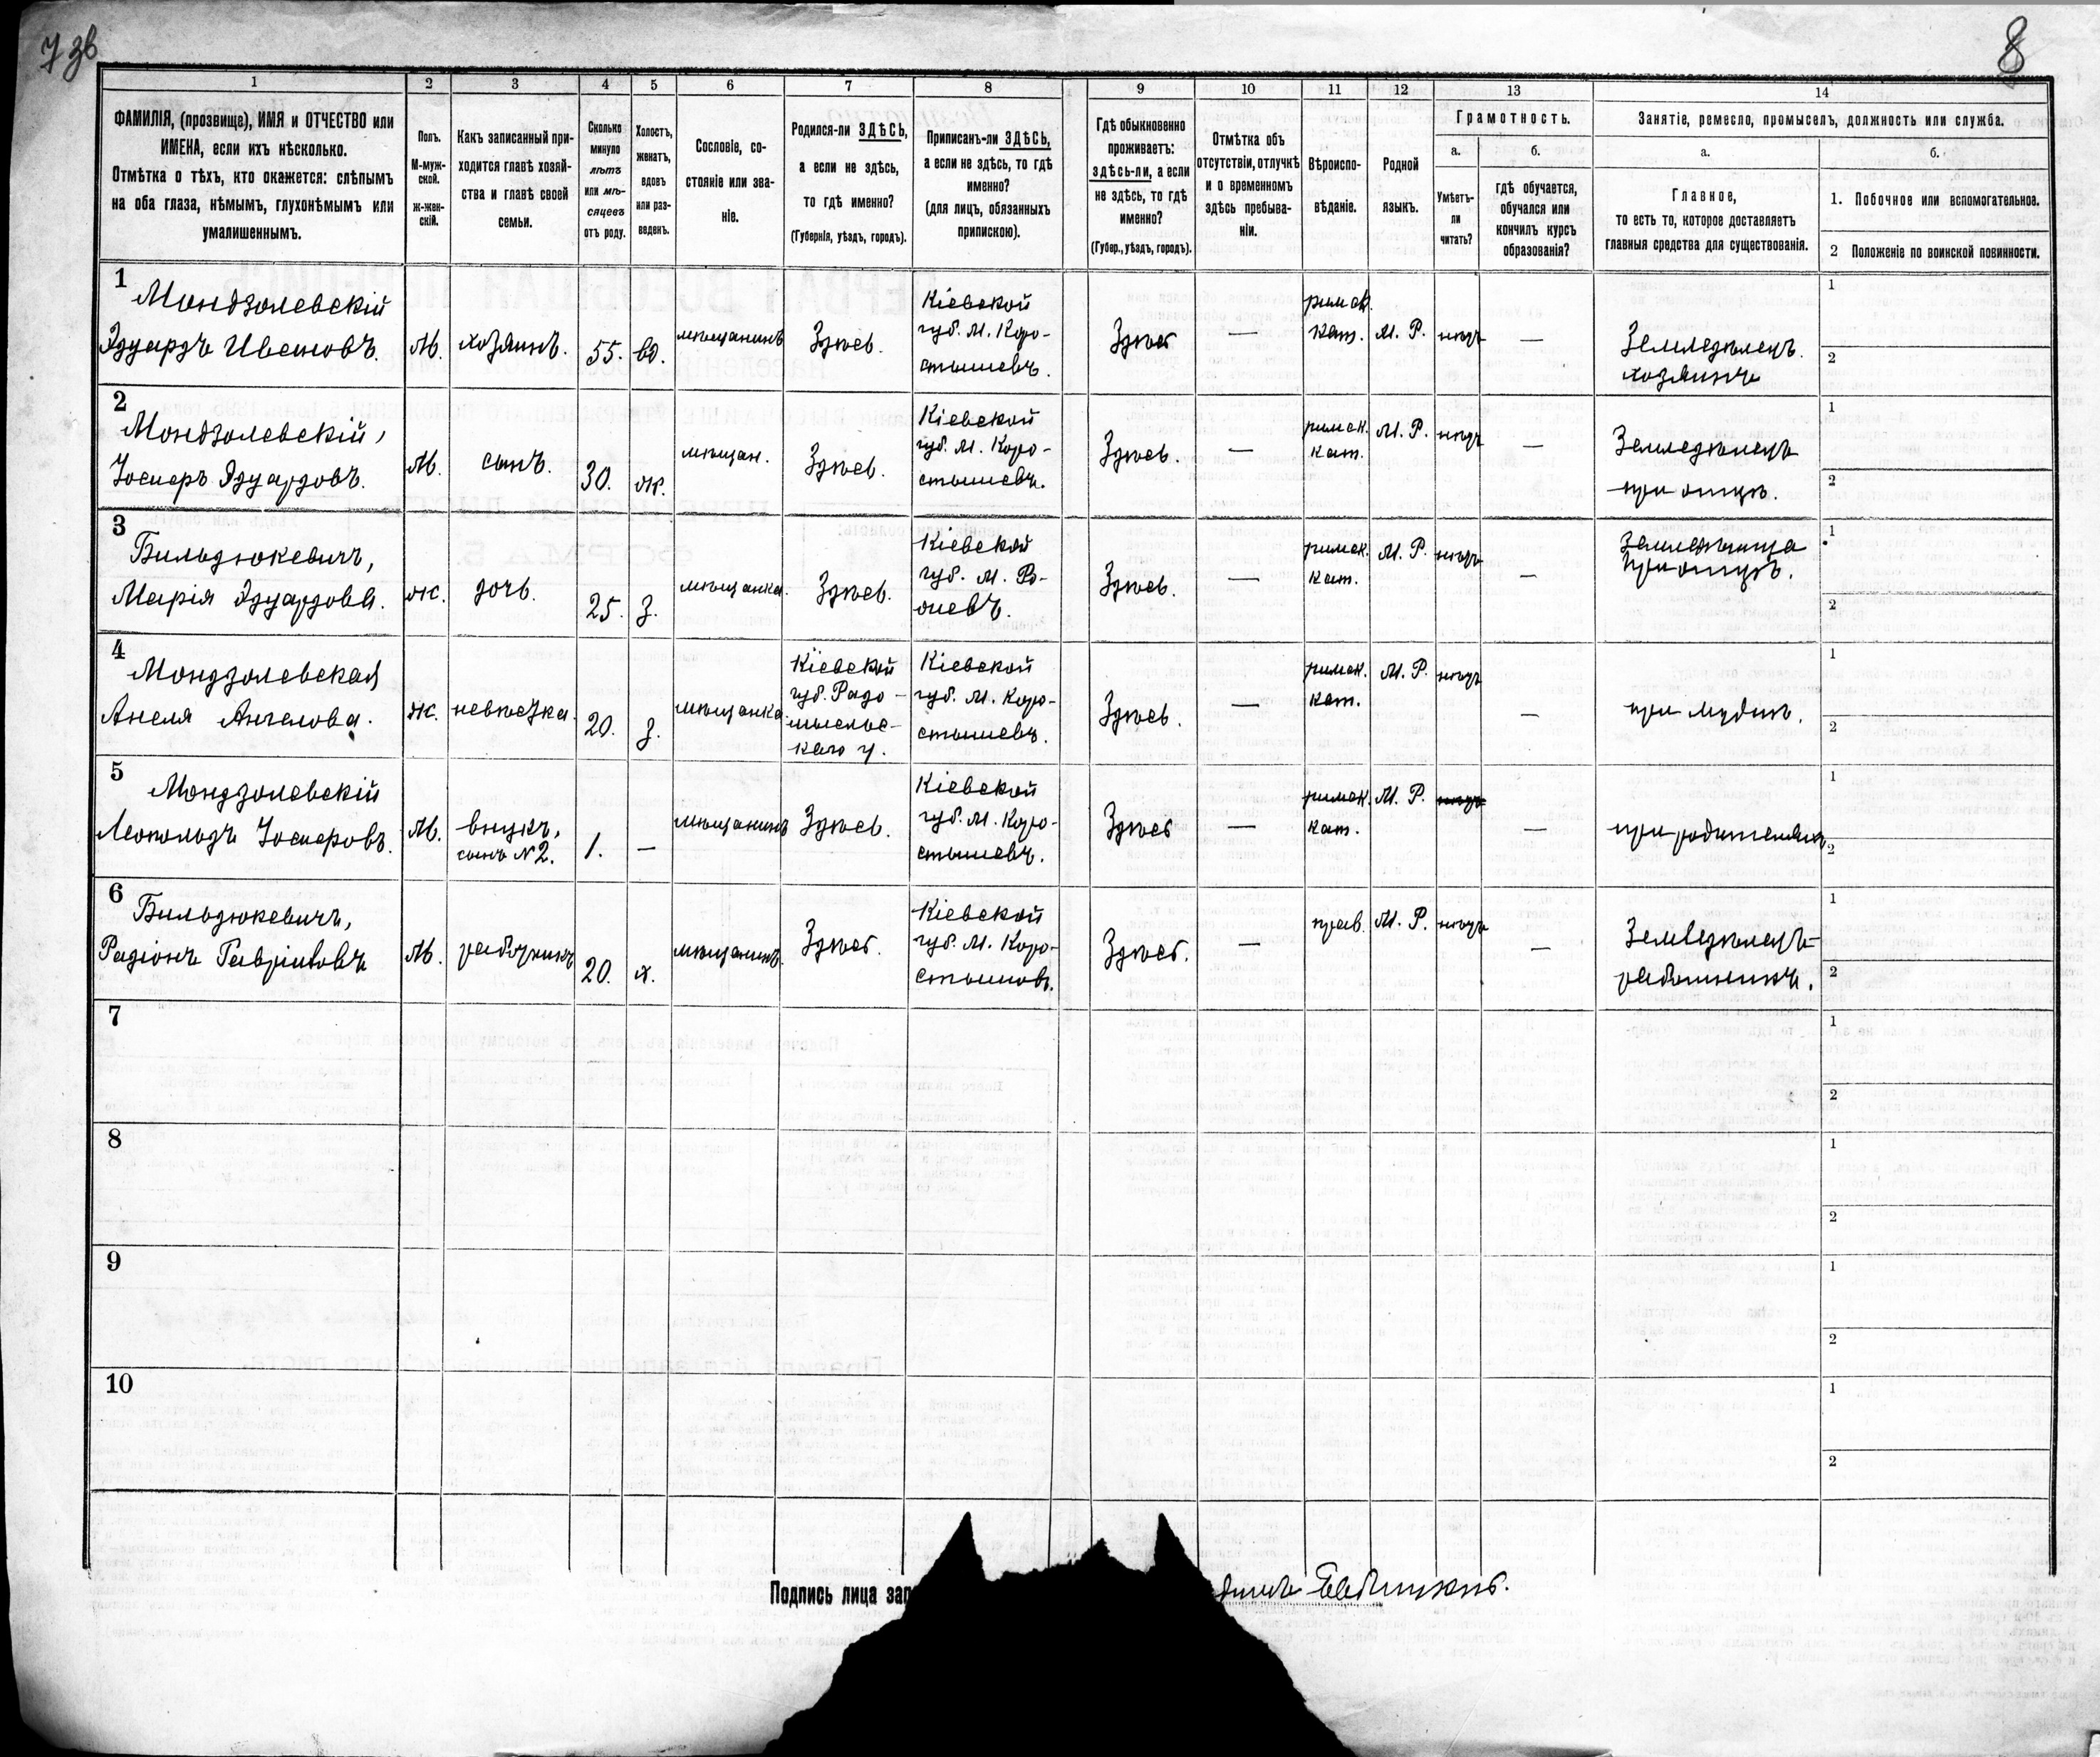 7 зв
8
1 2 3 4 5 6 7 8 9 10 11 12 13 14
ФАМИЛІЯ, (прозвище), ИМЯ и ОТЧЕСТВО или
ИМЕНА, если ихъ нѣсколько.
Отмѣтка о тѣхъ, кто окажется: слѣпымъ
на оба глаза, нѣмымъ, глухонѣмымъ или
умалишеннымъ.
Полъ.
М-муж-
ской.
ж-жен-
скій.
Какъ записанный при-
ходится главѣ хозяй-
ства и главѣ своей
семьи.
Сколько
минуло
лѣтъ
или мѣ-
сяцевъ
отъ роду.
Холостъ,
женатъ,
вдовъ
или раз-
веденъ.
Сословіе, со-
стояніе или зва-
ніе.
Родился-ли ЗДѢСЬ,
а если не здѣсь,
то гдѣ именно?
(Губернія, уѣздъ, городъ).
Приписанъ-ли ЗДѢСЬ,
а если не здѣсь, то гдѣ
именно?
(для лицъ, обязанныхъ
припискою).
Гдѣ обыкновенно
проживаетъ:
здѣсь-ли, а если
не здѣсь, то гдѣ
именно?
(Губер., уѣздъ, городъ).
Отмѣтка объ
отсутствіи, отлучкѣ
и о временномъ
здѣсь пребыва-
ніи.
Вѣроиспо-
вѣданіе.
Родной
языкъ.
Грамотность.
а.
Умѣетъ-
ли
читать?
б.
гдѣ обучается,
обучался или
кончилъ курсъ
образованія?
Занятіе, ремесло, промыселъ, должность или служба.
а.
Главное,
то есть то, которое доставляетъ
главныя средства для существованія.
б.
1. Побочное или вспомогательное.
2 Положеніе по воинской повинности.
1
Мондзолевскій
Эдуардъ Ивановъ.
М.
хозяинъ.
55.
вд.
мѣщанинъ
Здѣсь.
Кіевской
губ. М. Коро-
стышевъ.
Здѣсь
—
римск.
кат.
М. Р.
нѣтъ
—
Земледѣлецъ.
хозяинъ
1
2
2
Мондзолевскій,
Іосифъ Эдуардовъ.
М.
сынъ.
30.
ж.
мѣщан.
Здѣсь.
Кіевской
губ. М. Коро-
стышевъ.
Здѣсь.
—
римск.
кат.
М. Р.
нѣтъ
—
Земледѣлецъ
при отцѣ.
1
2
3
Бильдюкевичъ,
Марія Эдуардова.
ж.
дочь.
25.
з.
мѣщанка.
Здѣсь.
Кіевской
губ. М.
Здѣсь.
—
римск.
кат.
М. Р.
нѣтъ
—
при отцѣ.
1
2
4
Мондзолевская
Анеля Ангелова.
ж.
невѣстка.
20.
з.
мѣщанка.
Кіевской
губ. Радо-
мысльс-
каго у.
Кіевской
губ. М. Коро-
стышевъ.
Здѣсь.
—
римск.
кат.
М. Р.
нѣтъ
—
при мужѣ.
1
2
5
Мондзолевскій
Леопольдъ Іосифовъ.
М.
внукъ,
сынъ №2.
1.
—
мѣщанинъ
Здѣсь.
Кіевской
губ. М. Коро-
стышевъ.
Здѣсь
—
римск.
кат.
М. Р.
нѣтъ
—
при родителяхъ
1
2
6
Бильдюкевичъ,
Радіонъ Гавріиловъ
М.
работникъ
20.
х.
мѣщанинъ.
Здѣсь.
Кіевской
губ. М. Коро-
стышовъ.
Здѣсь.
—
прав.
М. Р.
нѣтъ
—
Земледѣлецъ-
работникъ.
1
2
7
1
2
8
1
2
9
1
2
10
1
2
Подпись лица зап